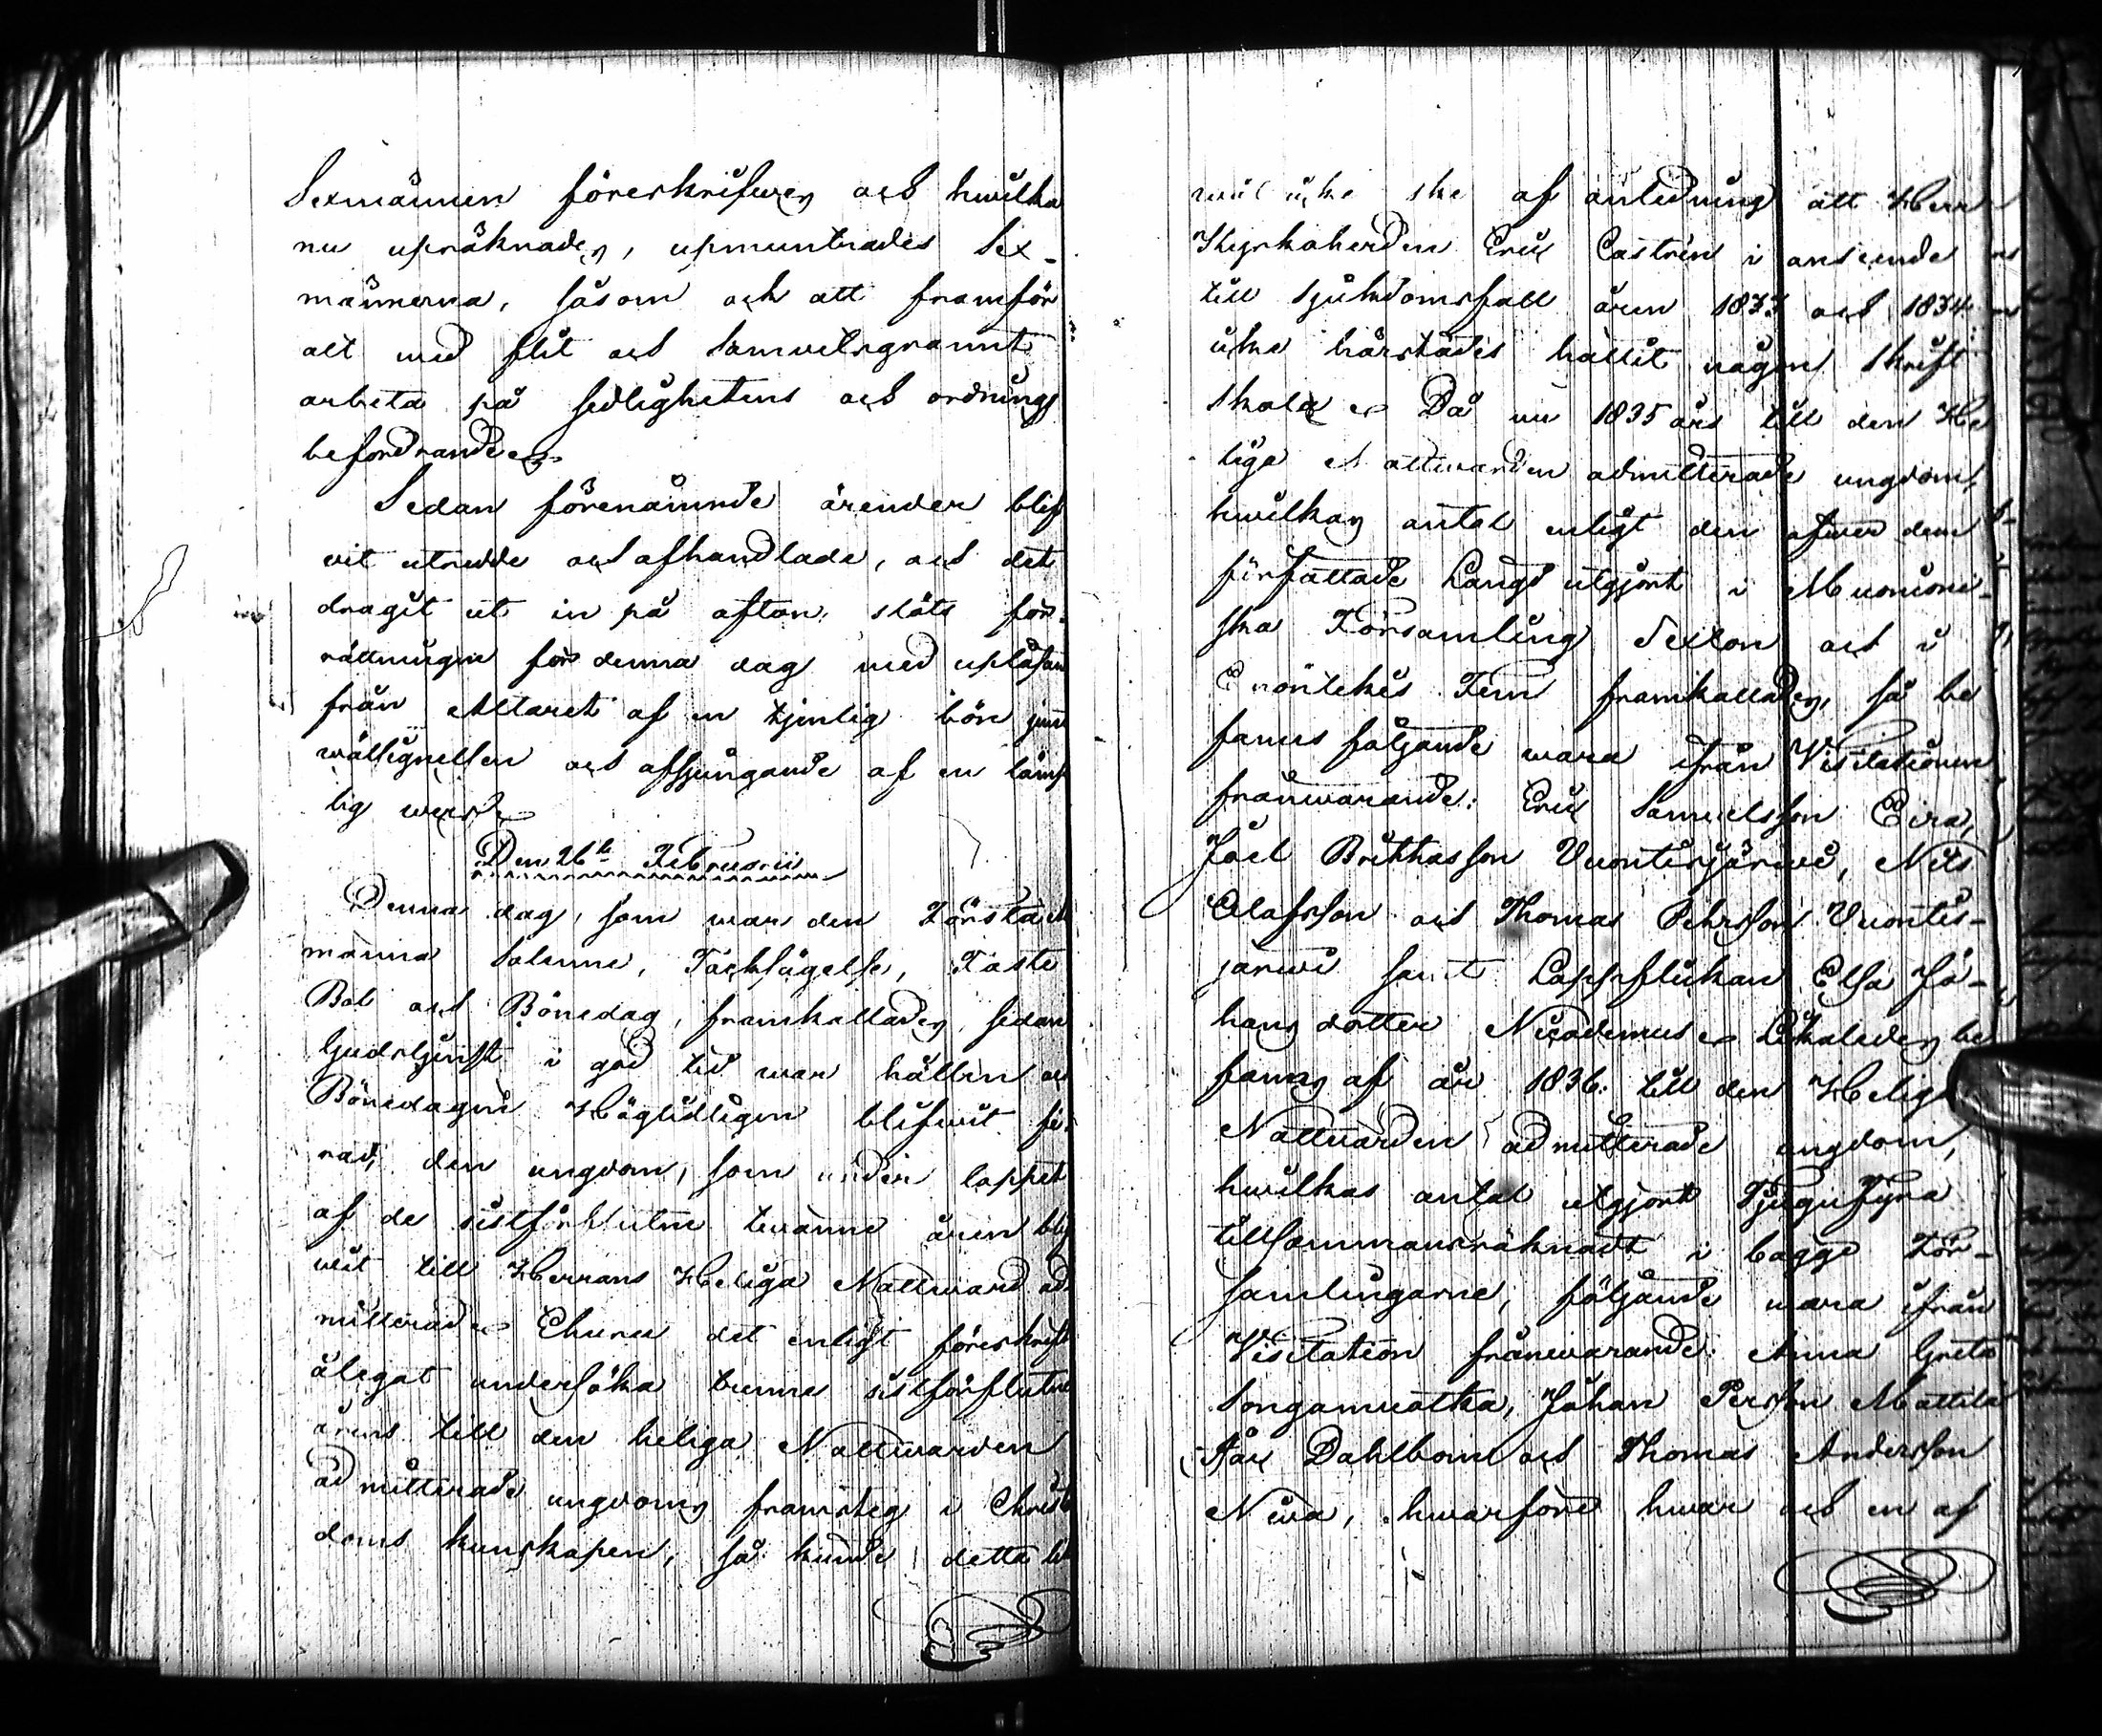 Sexmännen föreskrifwas och hwilka
nu upräknades, upmuntrades Sex-
männerna, såsom ock att framför
alt med flit och samvetsgrannt
arbeta på sedlighetens och ordnings
befordrande.
Sedan förenämnde ärender blif
vit utredde och afhandlade, och det
dragit ut in på afton, slöts för-
rättningen för denna dag med upläsan
från Altaret af en tjenlig bön jemte
wälsignelsen och afsjungande af en lämp
lig wers.
Den 26te Februarii
Denna dag, som war den Första all
männa Solenne, Tacksägelse, Faste
Bot och Bönedag, framkallades, sedan
Gudstjenst i god tid war hållen och
Bönedagens Högtidligen blifwit fi-
rad, den ungdom, som under loppet
af de sistförflutne twänne åren blif
wit till Herrans Heliga Nattward ad
mitterad. Ehuru det enligt föreskrift
ålegat undersöka trenne sistförflutne
årens till den heliga Nattwarden
admitterade ungdoms framsteg i Christ
doms kunskapen, så kunde detta lik
wäl icke ske af anledning att Herr
Kyrkoherden Eric Castrén i anseende
till sjukdomsfall åren 1833 och 1834
icke härstädes hållit någon Skrift
skola. Då nu 1835 års till den He
liga Nattwarden admitterade ungdom,
hwilkas antal enligt den öfwer dem
författade Längd utgjort i Muonioni-
ska Församling Sexton och i
Enontekis Fem framkallades, så be
fanns följande wara ifrån Visitationen
frånwarande: Eric Samuelsson Eira,
Joel Brikkasson Vuontisjärwi, Nils
Olafsson och Thomas Pehrsson Vuontis-
järwi samt Lappflickan Elsa Jo-
hans dotter Nicodemus. Likaledes be
fanns af år 1836 till den Heliga
Nattwarden admitterade ungdom,
hwilkas antal utgjort Tjugu Fyra
tillsammansräknadt i bägge För-
samlingarne, följande wara ifrån
Visitation frånwarande: Anna Greta
Songamuotka, Johan Persson Mattila
Dahlbom och Thomas Andersson
Niwa, hwarföre hwar och en af